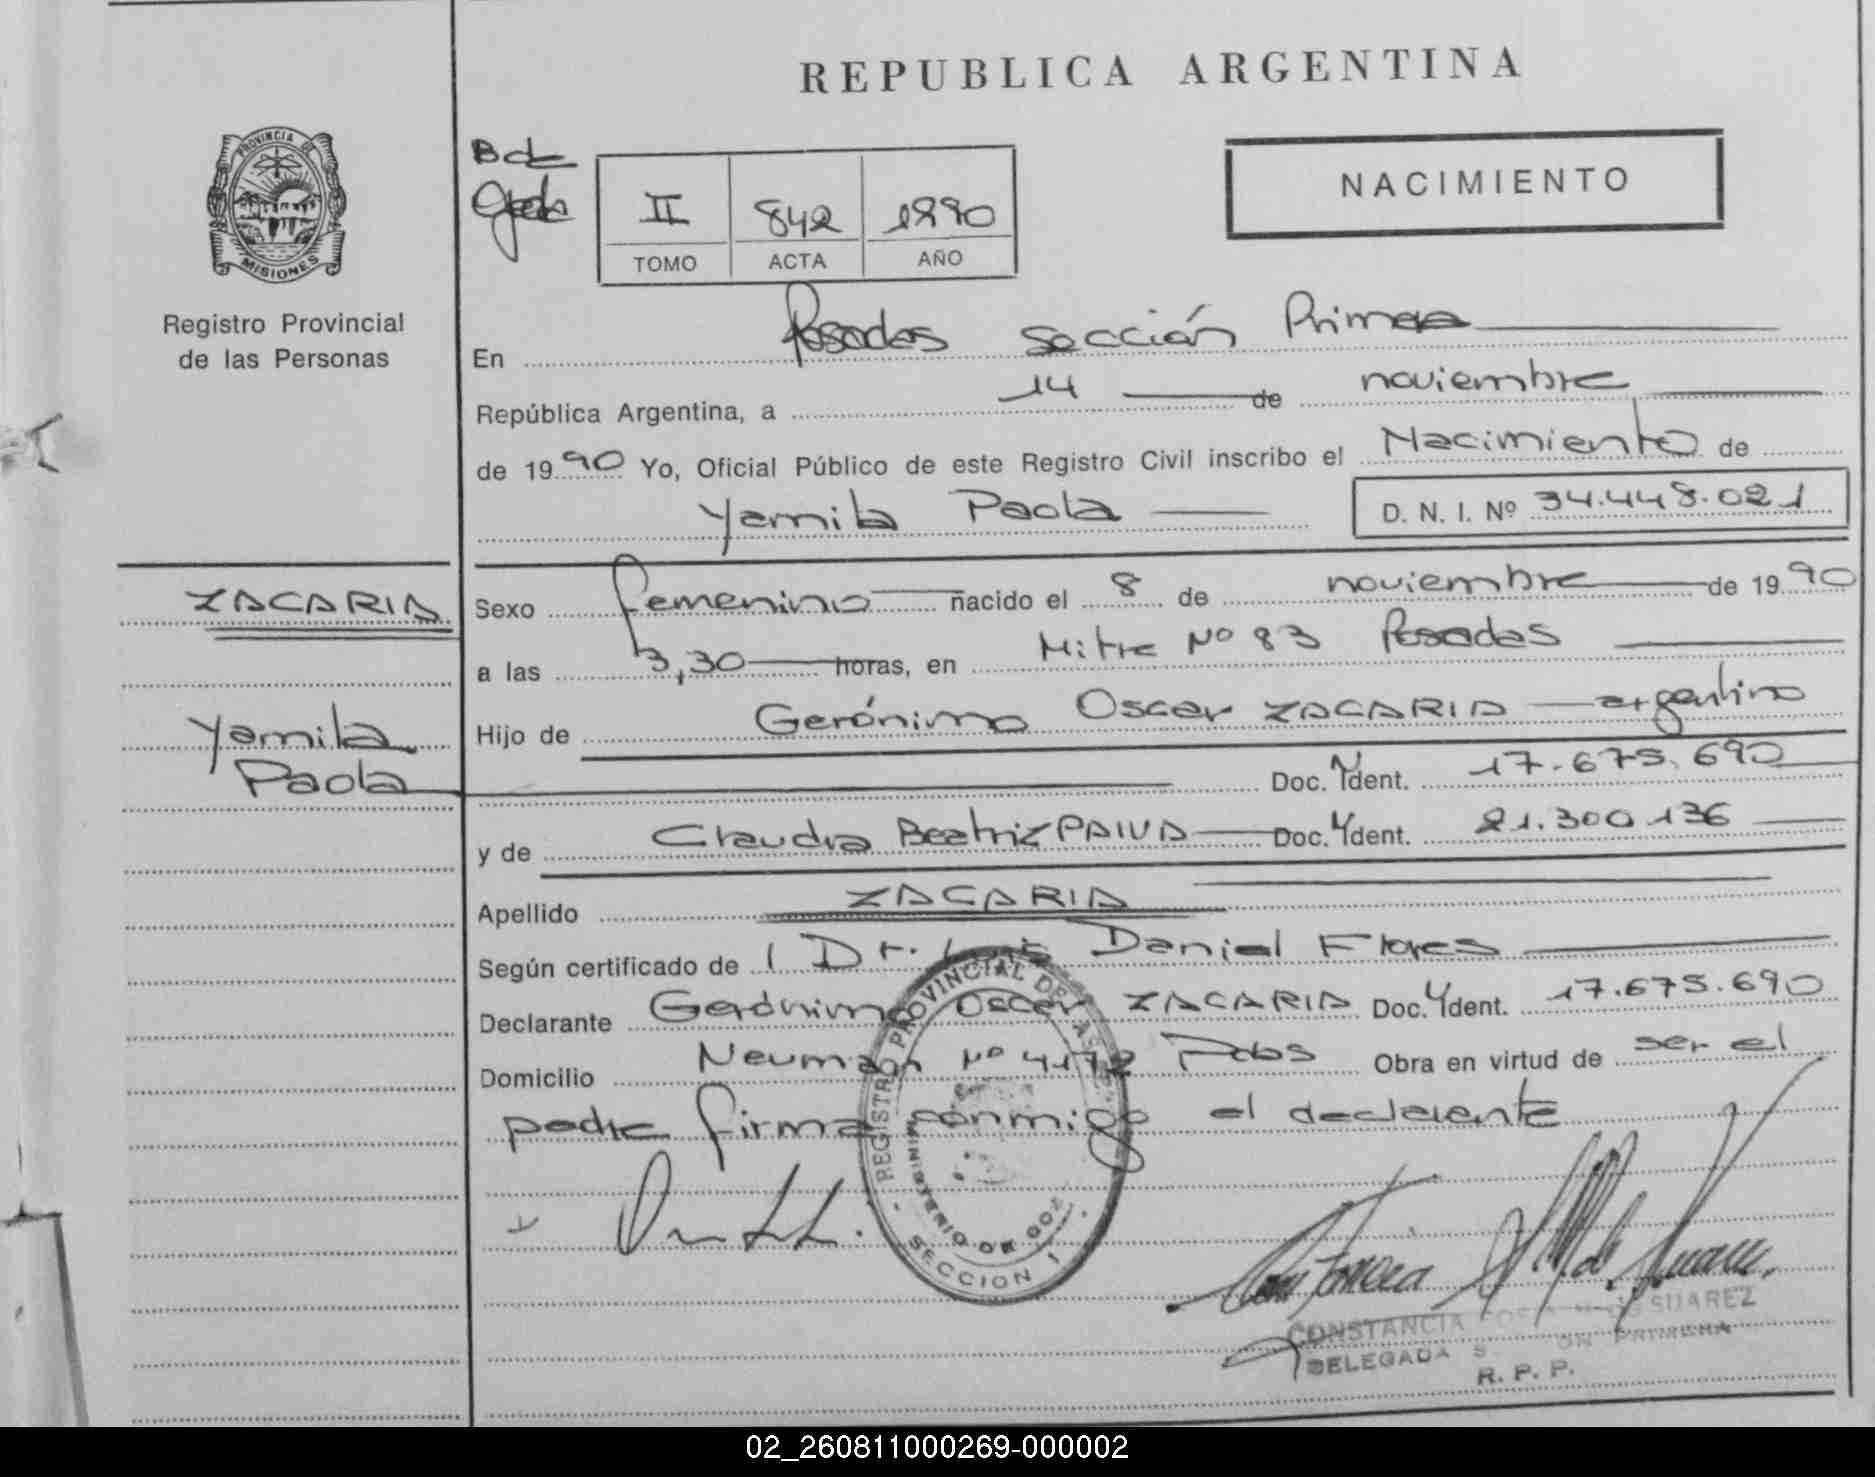 REPUBLICA ARGENTINA
PROVINCIA DE
MISIONES
Registro Provincial
de las Personas
NACIMIENTO
II 842 1990
TOMO ACTA AÑO
En Posadas sección Primera
República Argentina, a 14 de noviembre
de 1990 Yo, Oficial Público de este Registro Civil inscribo el Nacimiento de
Yamila Paola D. N. I. Nº 34.448.021
ZACARIA
Yamila
Paola
Sexo femenino nacido el 8 de noviembre de 1990
a las 3,30 horas, en Mitre Nº 83 Posadas
Hijo de Gerónimo Oscar ZACARIA argentino
Doc. Ydent. 17.675.690
y de Claudia Beatriz PAIVA Doc. Ydent. 21.300.136
Apellido ZACARIA
Según certificado de Dr. Luis Daniel Flores
Declarante Gerónimo Oscar ZACARIA Doc. Ydent. 17.675.690
Domicilio Neuman Nº 4172 Pdas Obra en virtud de ser el
padre firma conmigo el declarante
REGISTRO PROVINCIAL DE LAS
MINISTERIO DE GOB
SECCION 1
CONSTANCIA SUAREZ
DELEGADA PRIMERA
R. P. P.
02_260811000269-000002